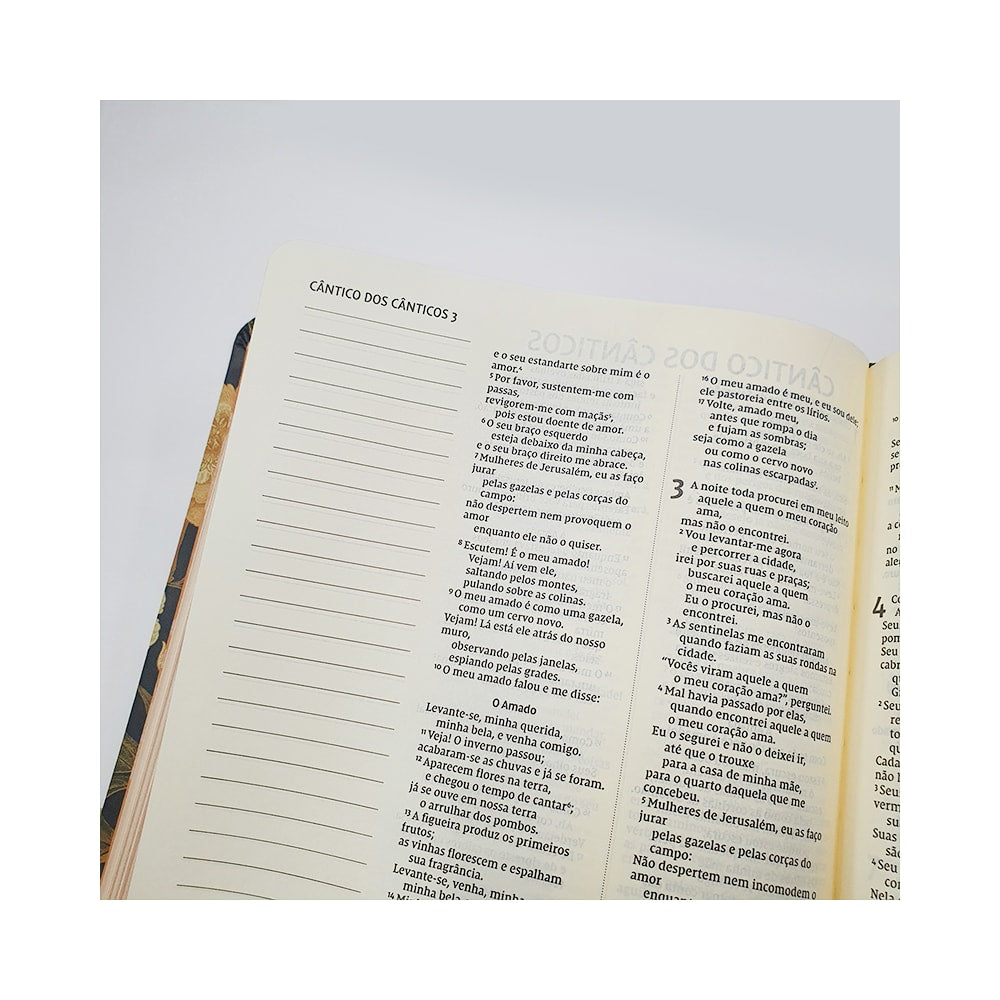 CÂNTICO DOS CÂNTICOS 3
e o seu estandarte sobre mim é o
amor.⁴
⁵ Por favor, sustentem-me com
passas,
revigorem-me com maçãs⁵,
pois estou doente de amor.
⁶ O seu braço esquerdo
esteja debaixo da minha cabeça,
e o seu braço direito me abrace.
⁷ Mulheres de Jerusalém, eu as faço
jurar
pelas gazelas e pelas corças do
campo:
não despertem nem provoquem o
amor
enquanto ele não o quiser.
⁸ Escutem! É o meu amado!
Vejam! Aí vem ele,
saltando pelos montes,
pulando sobre as colinas.
⁹ O meu amado é como uma gazela,
como um cervo novo.
Vejam! Lá está ele atrás do nosso
muro,
observando pelas janelas,
espiando pelas grades.
¹⁰ O meu amado falou e me disse:
O Amado
Levante-se, minha querida,
minha bela, e venha comigo.
¹¹ Veja! O inverno passou;
acabaram-se as chuvas e já se foram.
¹² Aparecem flores na terra,
e chegou o tempo de cantar⁶;
já se ouve em nossa terra
o arrulhar dos pombos.
¹³ A figueira produz os primeiros
frutos;
as vinhas florescem e espalham
sua fragrância.
Levante-se, venha, minha
minha bela
¹⁶ O meu amado é meu, e eu sou dele;
ele pastoreia entre os lírios.
¹⁷ Volte, amado meu,
antes que rompa o dia
e fujam as sombras;
seja como a gazela
ou como o cervo novo
nas colinas escarpadas⁷.
3 A noite toda procurei em meu leito
aquele a quem o meu coração
ama,
mas não o encontrei.
² Vou levantar-me agora
e percorrer a cidade,
irei por suas ruas e praças;
buscarei aquele a quem
o meu coração ama.
Eu o procurei, mas não o
encontrei.
³ As sentinelas me encontraram
quando faziam as suas rondas na
cidade.
“Vocês viram aquele a quem
o meu coração ama?”, perguntei.
⁴ Mal havia passado por elas,
quando encontrei aquele a quem
o meu coração ama.
Eu o segurei e não o deixei ir,
até que o trouxe
para a casa de minha mãe,
para o quarto daquela que me
concebeu.
⁵ Mulheres de Jerusalém, eu as faço
jurar
pelas gazelas e pelas corças do
campo:
Não despertem nem incomodem o
amor
4